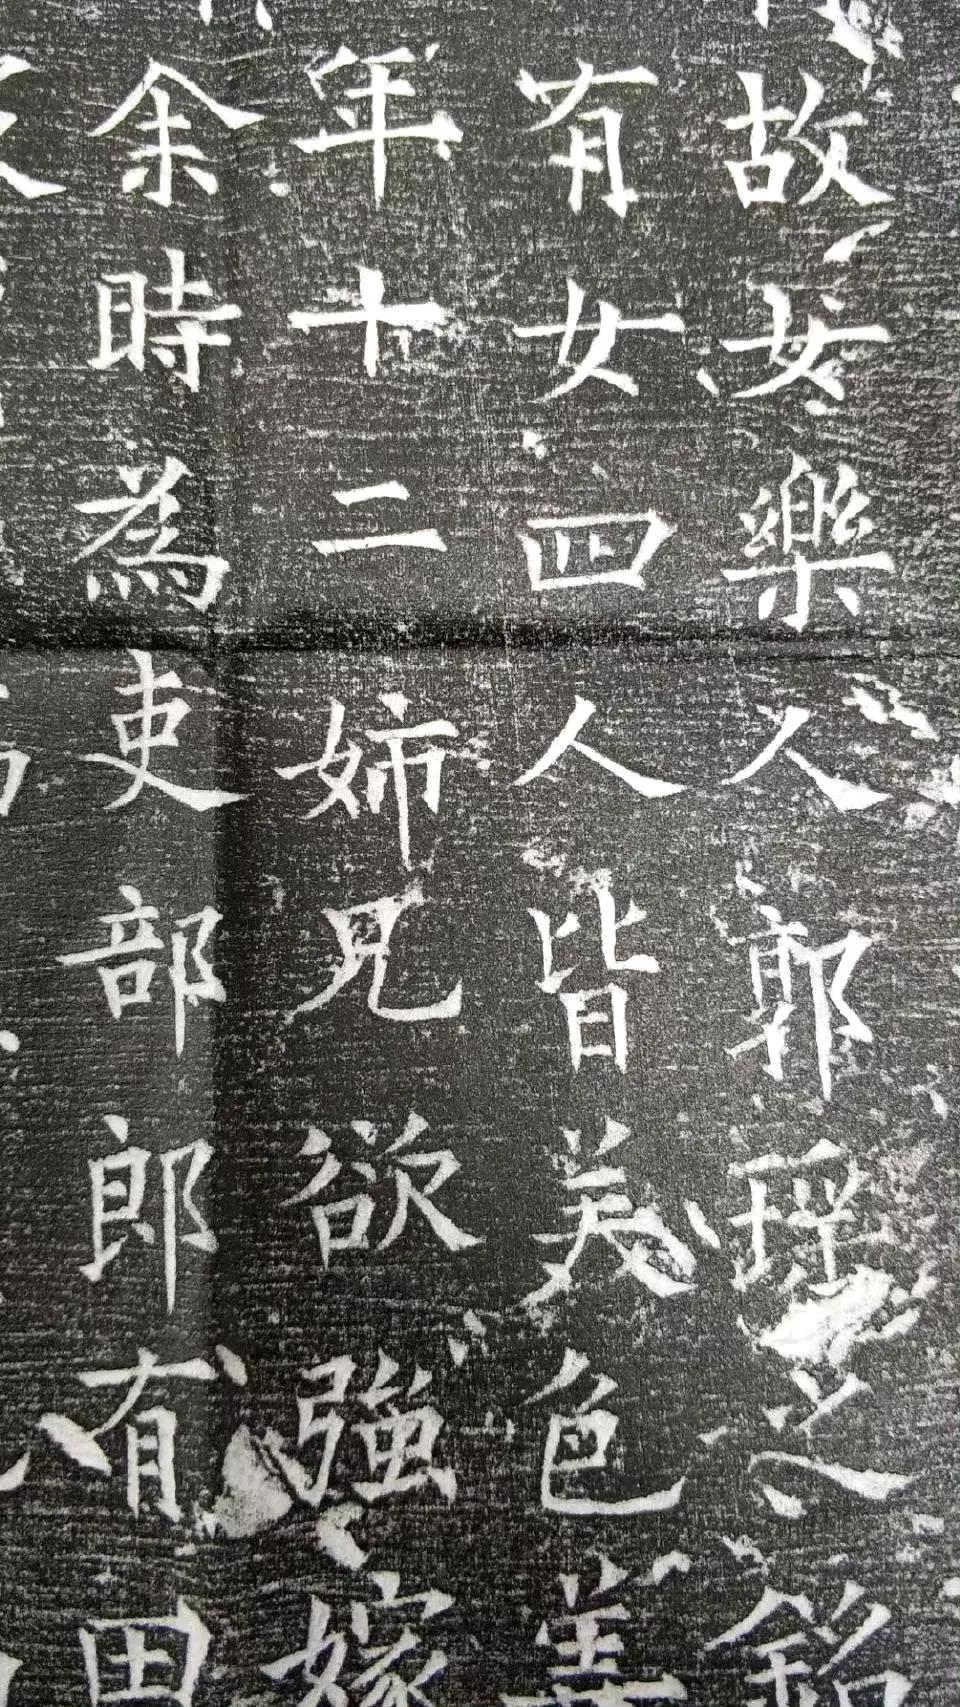 故樂人郭之銘
有女四人皆美色善
年十二姉兄欲強嫁
余時為吏部郎有田